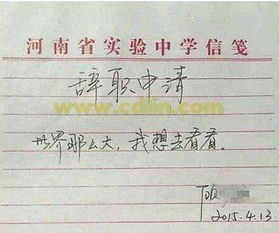 河南省实验中学信笺
辞职申请
www.cdlin.com
世界那么大，我想去看看。
2015.4.13